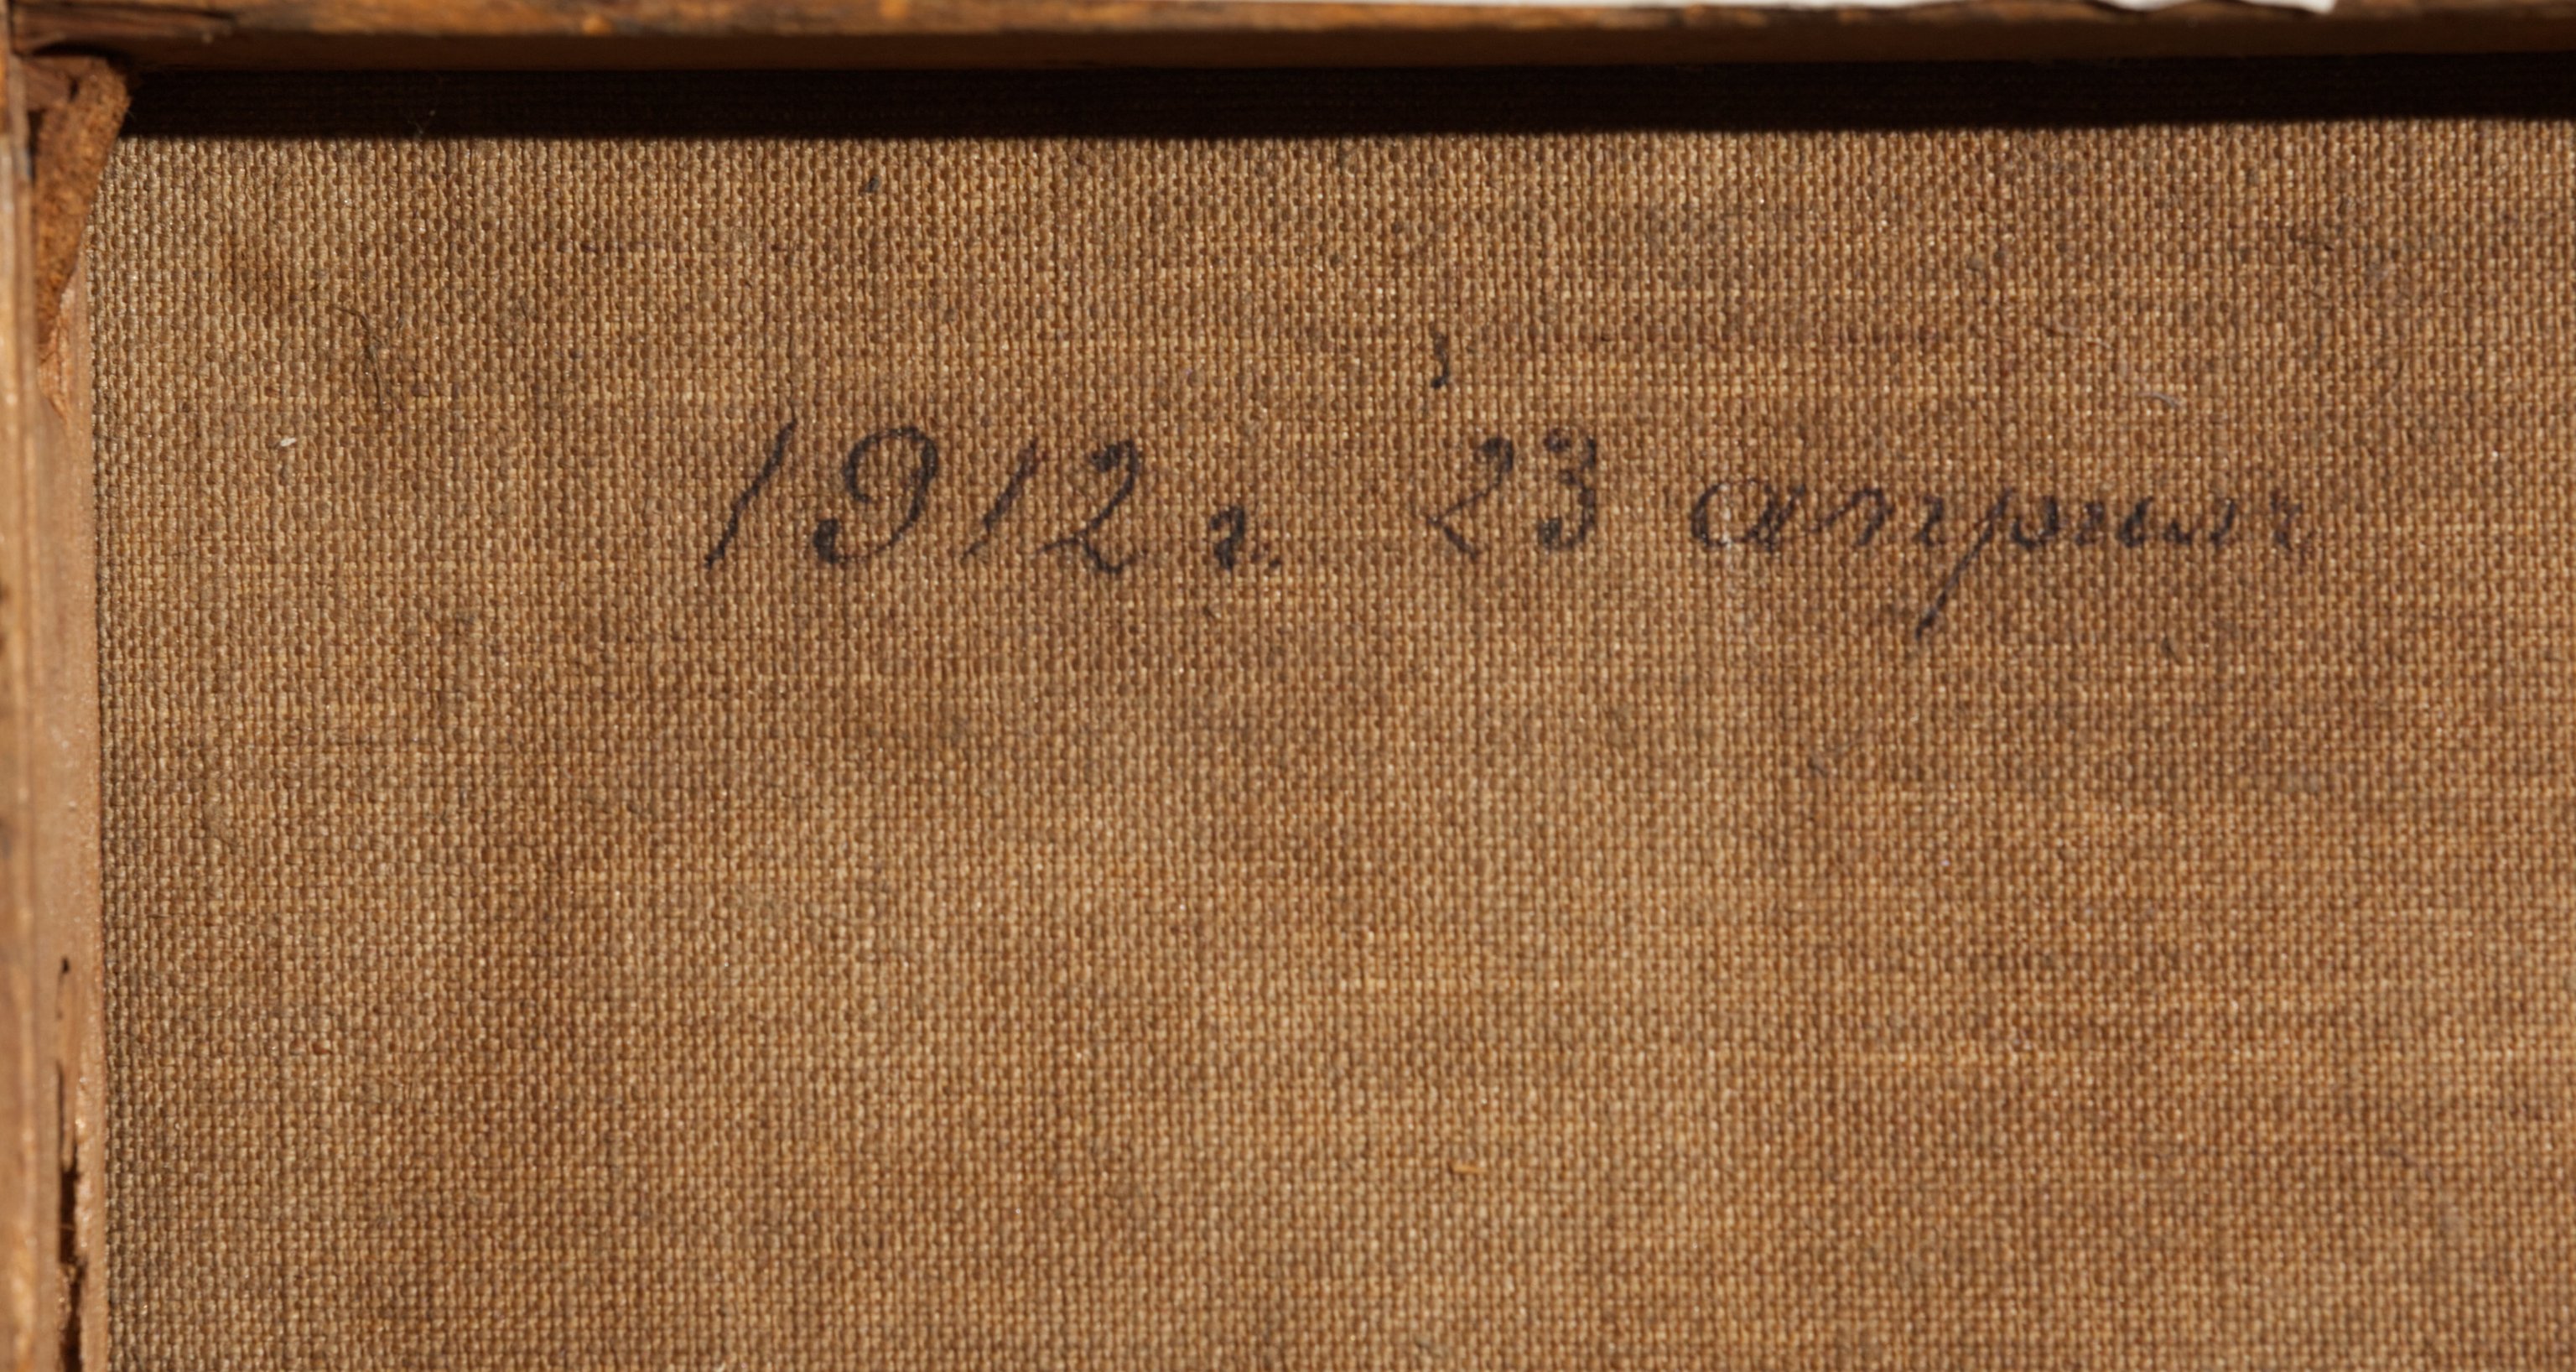 1912 г. 23 апреля